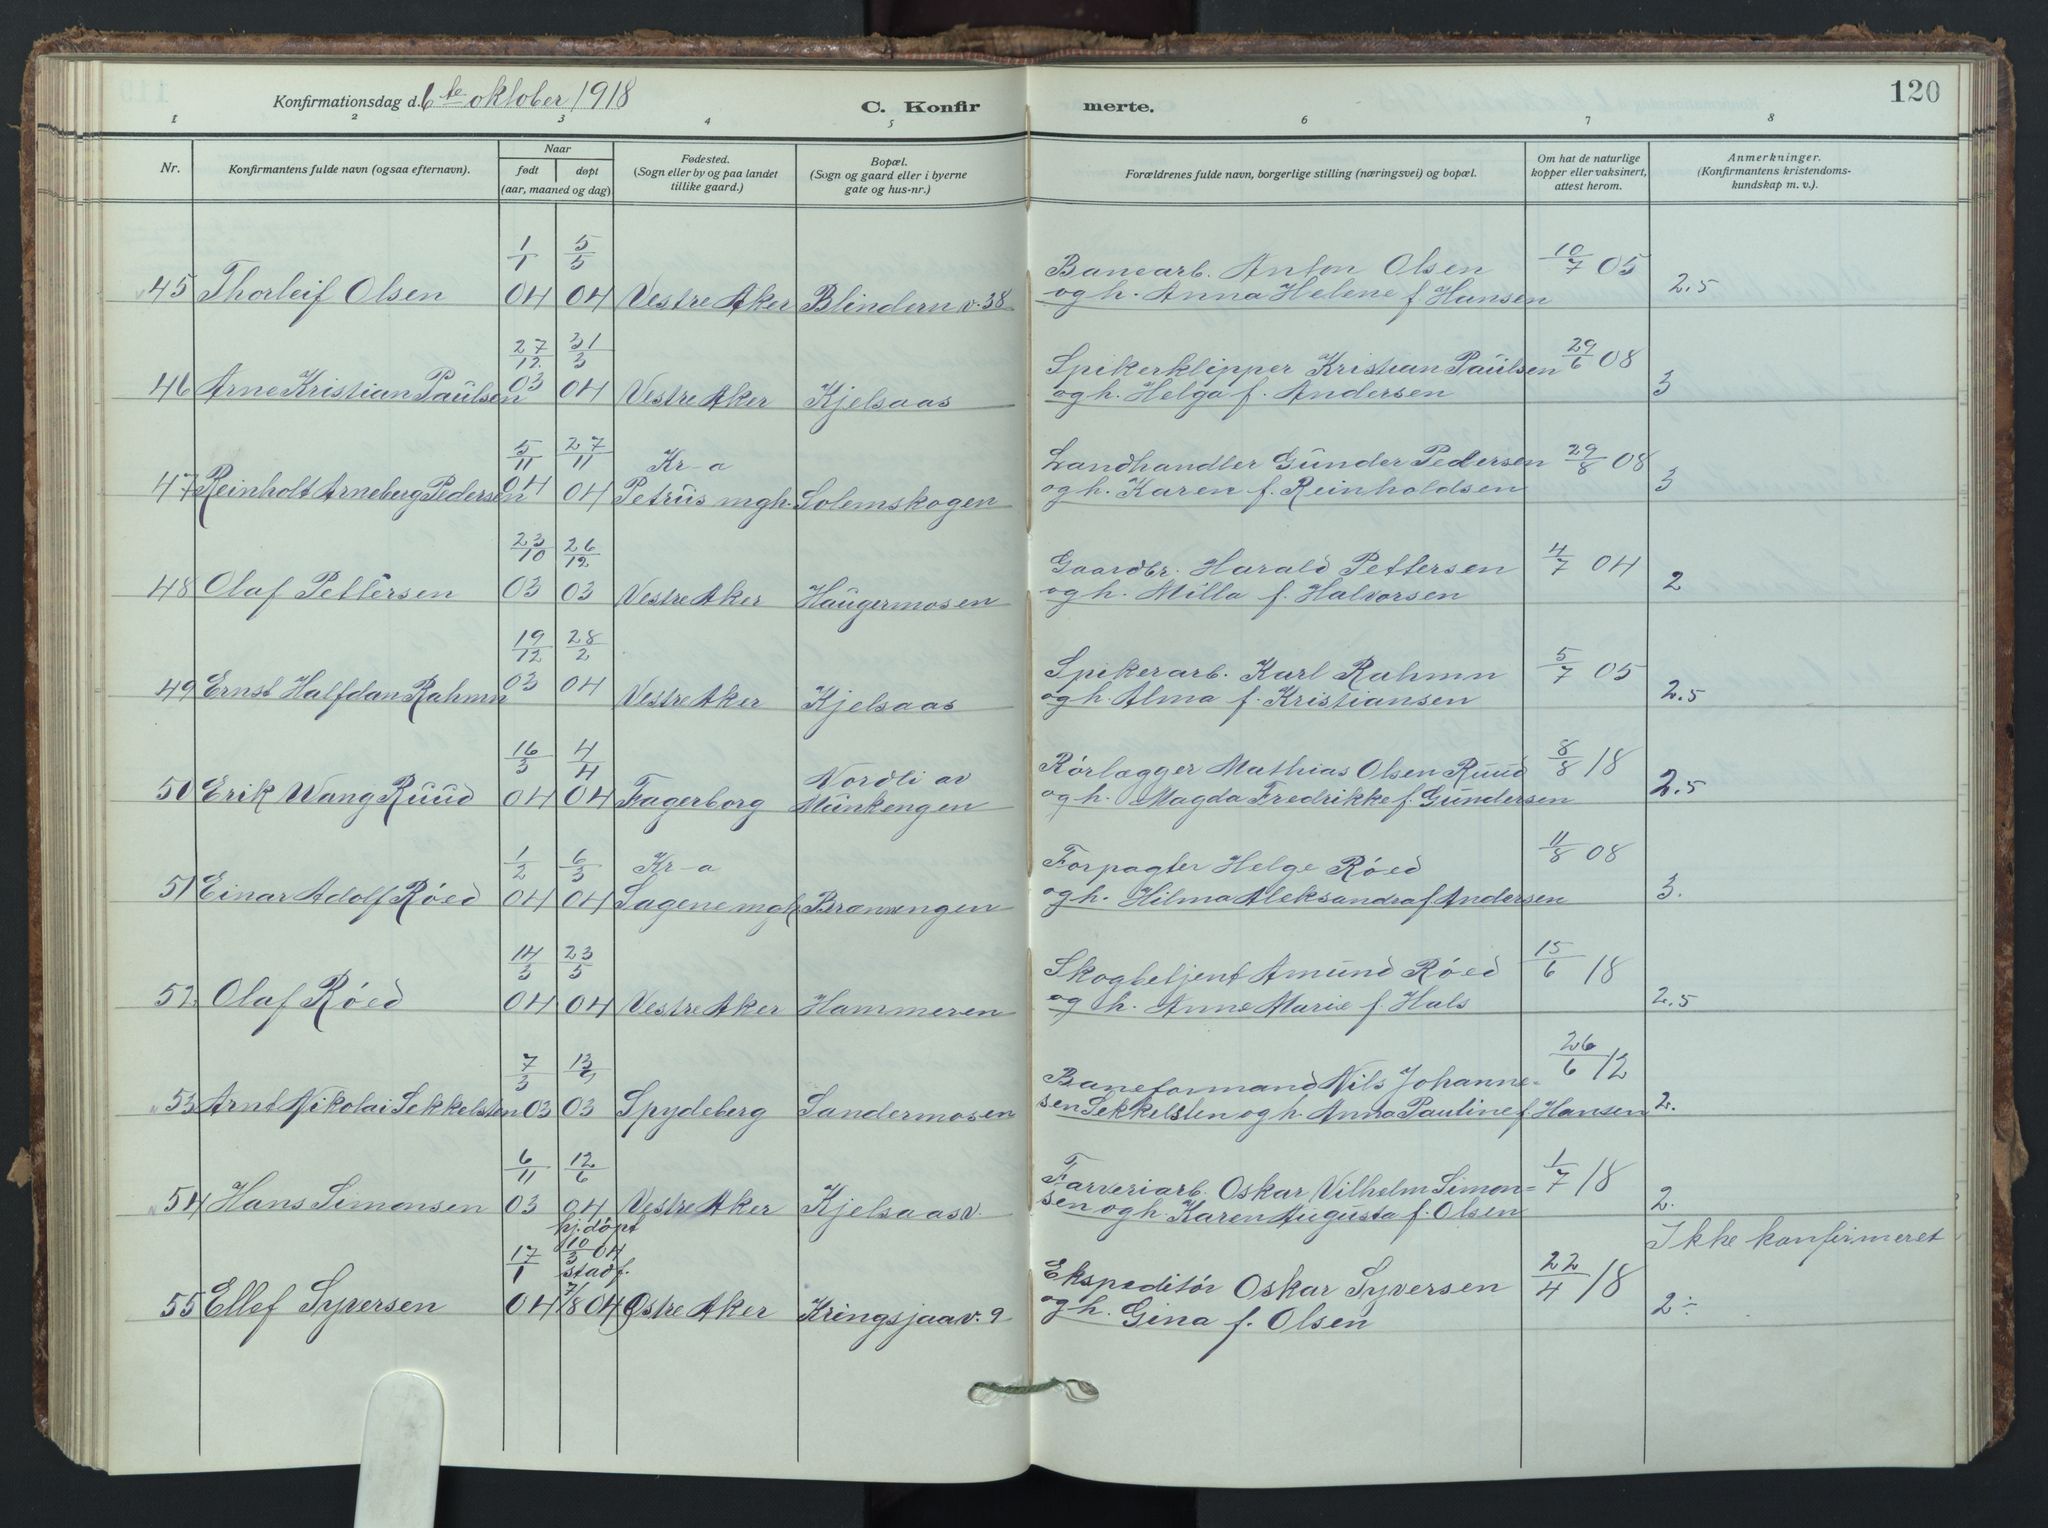 120
Konfirmationsdag d. 6te oktober 1918
C. Konfirmerte.
1 2 3 4 5 6 7 8
Nr.
Konfirmantens fulde navn (ogsaa efternavn).
Naar
født døpt
(aar, maaned og dag)
Fødested.
(Sogn eller by og paa landet
tillike gaard.)
Bopæl.
(Sogn og gaard eller i byerne
gate og hus-nr.)
Forældrenes fulde navn, borgerlige stilling (næringsvei) og bopæl.
Om hat de naturlige
kopper eller vaksinert,
attest herom.
Anmerkninger.
(Konfirmantens kristendoms-
kundskap m. v.)
1/1 5/5 Banearb. Anton Olsen 10/7 05
45 Thorleif Olsen 04 04 Vestre Aker Blindern v. 38 og h. Anna Helene f. Hansen 2.5
27/12 31/3 Spikerklipper Kristian Paulsen 29/6 08
46 Arne Kristian Paulsen 03 04 Vestre Aker Kjelsaas og h. Helga f. Andersen 3
5/11 27/11 Kr-a Landhandler Gunder Pedersen 29/8 08
47 Reinholt Arneberg Pedersen 04 04 Petrus mgh. Solemskogen og h. Karen f. Reinholdsen 3
23/10 26/12 Gaardbr. Harald Pettersen 4/7 04
48 Olaf Pettersen 03 03 Vestre Aker Haugermosen og h. Milla f. Halvorsen 2
19/12 28/2 Spikerarb. Karl Rahmn 5/7 05
49 Ernst Halfdan Rahmn 03 04 Vestre Aker Kjelsaas og h. Alma f. Kristiansen 2.5
16/3 4/4 Nordli av Rørlægger Mathias Olsen Ruud 8/8 18
50 Erik Wang Ruud 04 04 Fagerborg Munkengen og h. Magda Fredrikke f. Gundersen 2.5
1/2 6/3 Kr-a Forpagter Helge Røed 11/8 08
51 Einar Adolf Røed 04 04 Sagene mgh. Brannengen og h. Hilma Aleksandra f Andersen 3.
14/3 23/5 Skogbetjent Amund Røed 15/6 18
52 Olaf Røed 04 04 Vestre Aker Hammeren og h. Anne Marie f. Hals 2.5
7/3 Baneformand Nils Johanne- 26/6 12
53 Arnt Nikolai Sekkelsten 03 03 Spydeberg Sandermosen sen Sekkelsten og h. Anna Pauline f. Hansen 2.
6/11 12/6 Farveriarb. Oskar Vilhelm Simon= 1/7 18
54 Hans Simonsen 03 04 Vestre Aker Kjelsaasv. sen og h. Karen Augusta f. Olsen 2.
hj.døpt Ikke konfirmeret
17/1 10/3 04 stadf. Ekspeditør Oskar Syversen 22/4 18
55 Ellef Syversen 04 7/8 04 Østre Aker Kringsjaav. 9 og h. Gina f. Olsen 2÷